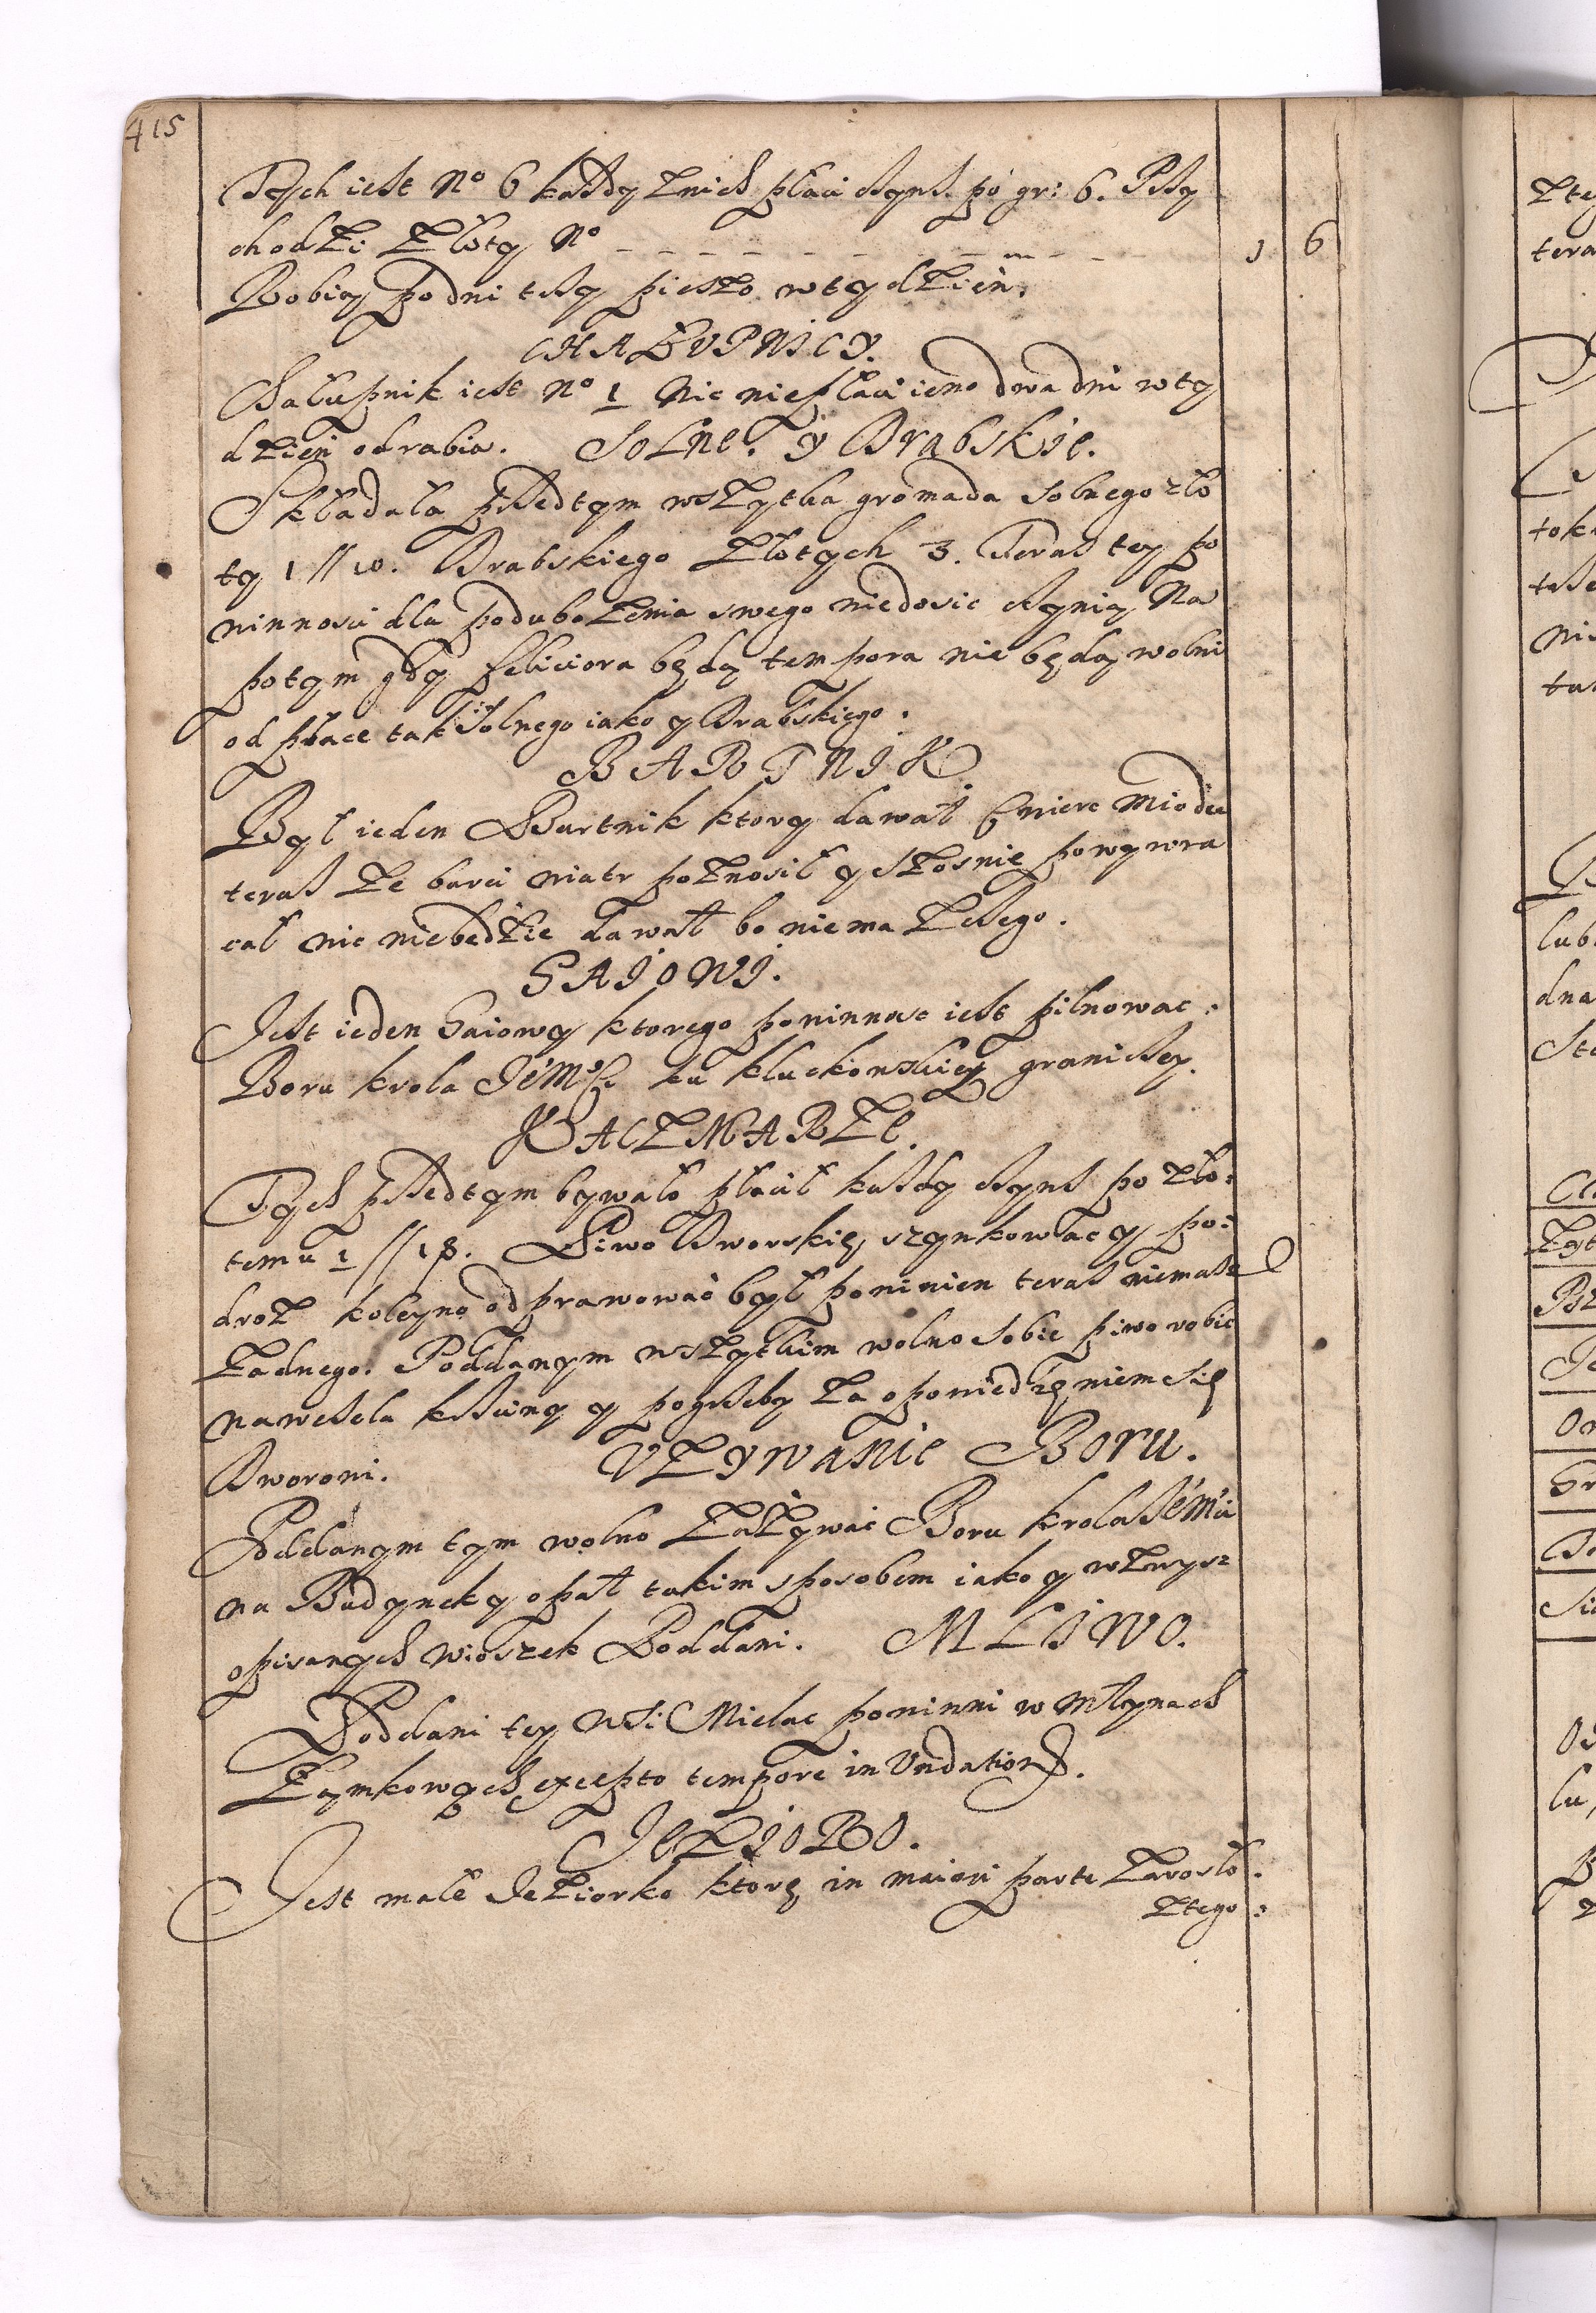 415
Tych iest No 6 każdy z nich płaci czynsz po gr: 6. Przy
chodzi Złoty No _ _ _ _ _ _ _ _ 1 6
Robią po dni trzy pieszo w tydzien.
CHAŁUPNICY.
Chałupnik iest No 1 Nic nie płaci ieno dwa dni w ty
dzien odrabia. SOLNE. Y Drabskie.
Składała przedtym wszytka gromada Solnego zło
ty 1 // 10. Drabskiego Złotych 3. Teraz tey po
winnosci dla podubozenia swego niedosic czynią Na
potym gdy feliciora będą tempora nie będą wolni
od płace tak Solnego iako y Drabskiego.
BARTNIK
Był ieden Bartnik ktory dawał Miodu
teraz ze barci wiatr poznosił y sosnie powywra
cał nic niebędzie dawał bo niema z czego.
GAIOWI.
Jest ieden Gaiowy ktorego powinnosc iest pilnowac:
Boru krola Jem ku kluckowskiey graniczey.
KACZMARZE.
Tych przedtym bywało płacił kazdy czynsz po zło:
temu 1 // 18. Piwo Dworskie szynkowac y po:
droz koleyno odprawowac był powinien teraz niemasz
Zadnego. Poddanym wszytkim wolno sobie piwo robic
na wesela krzciny y pogrzeby za opowiedzeniem się
Dworowi. UZYWANIE BORU.
Poddanym tym wolno Zazywac Boru krola Jem
na Budynek y opał takim sposobem iako y wzwysz
opisanych wioszek Poddani. MLIWO.
Poddani tey wsi Mielac powinni w Młynach
Zamkowych excepto tempore inundation
JEZIORO.
Jest małe Jeziorko ktore in maiori parte Zarosło.
Ztego: